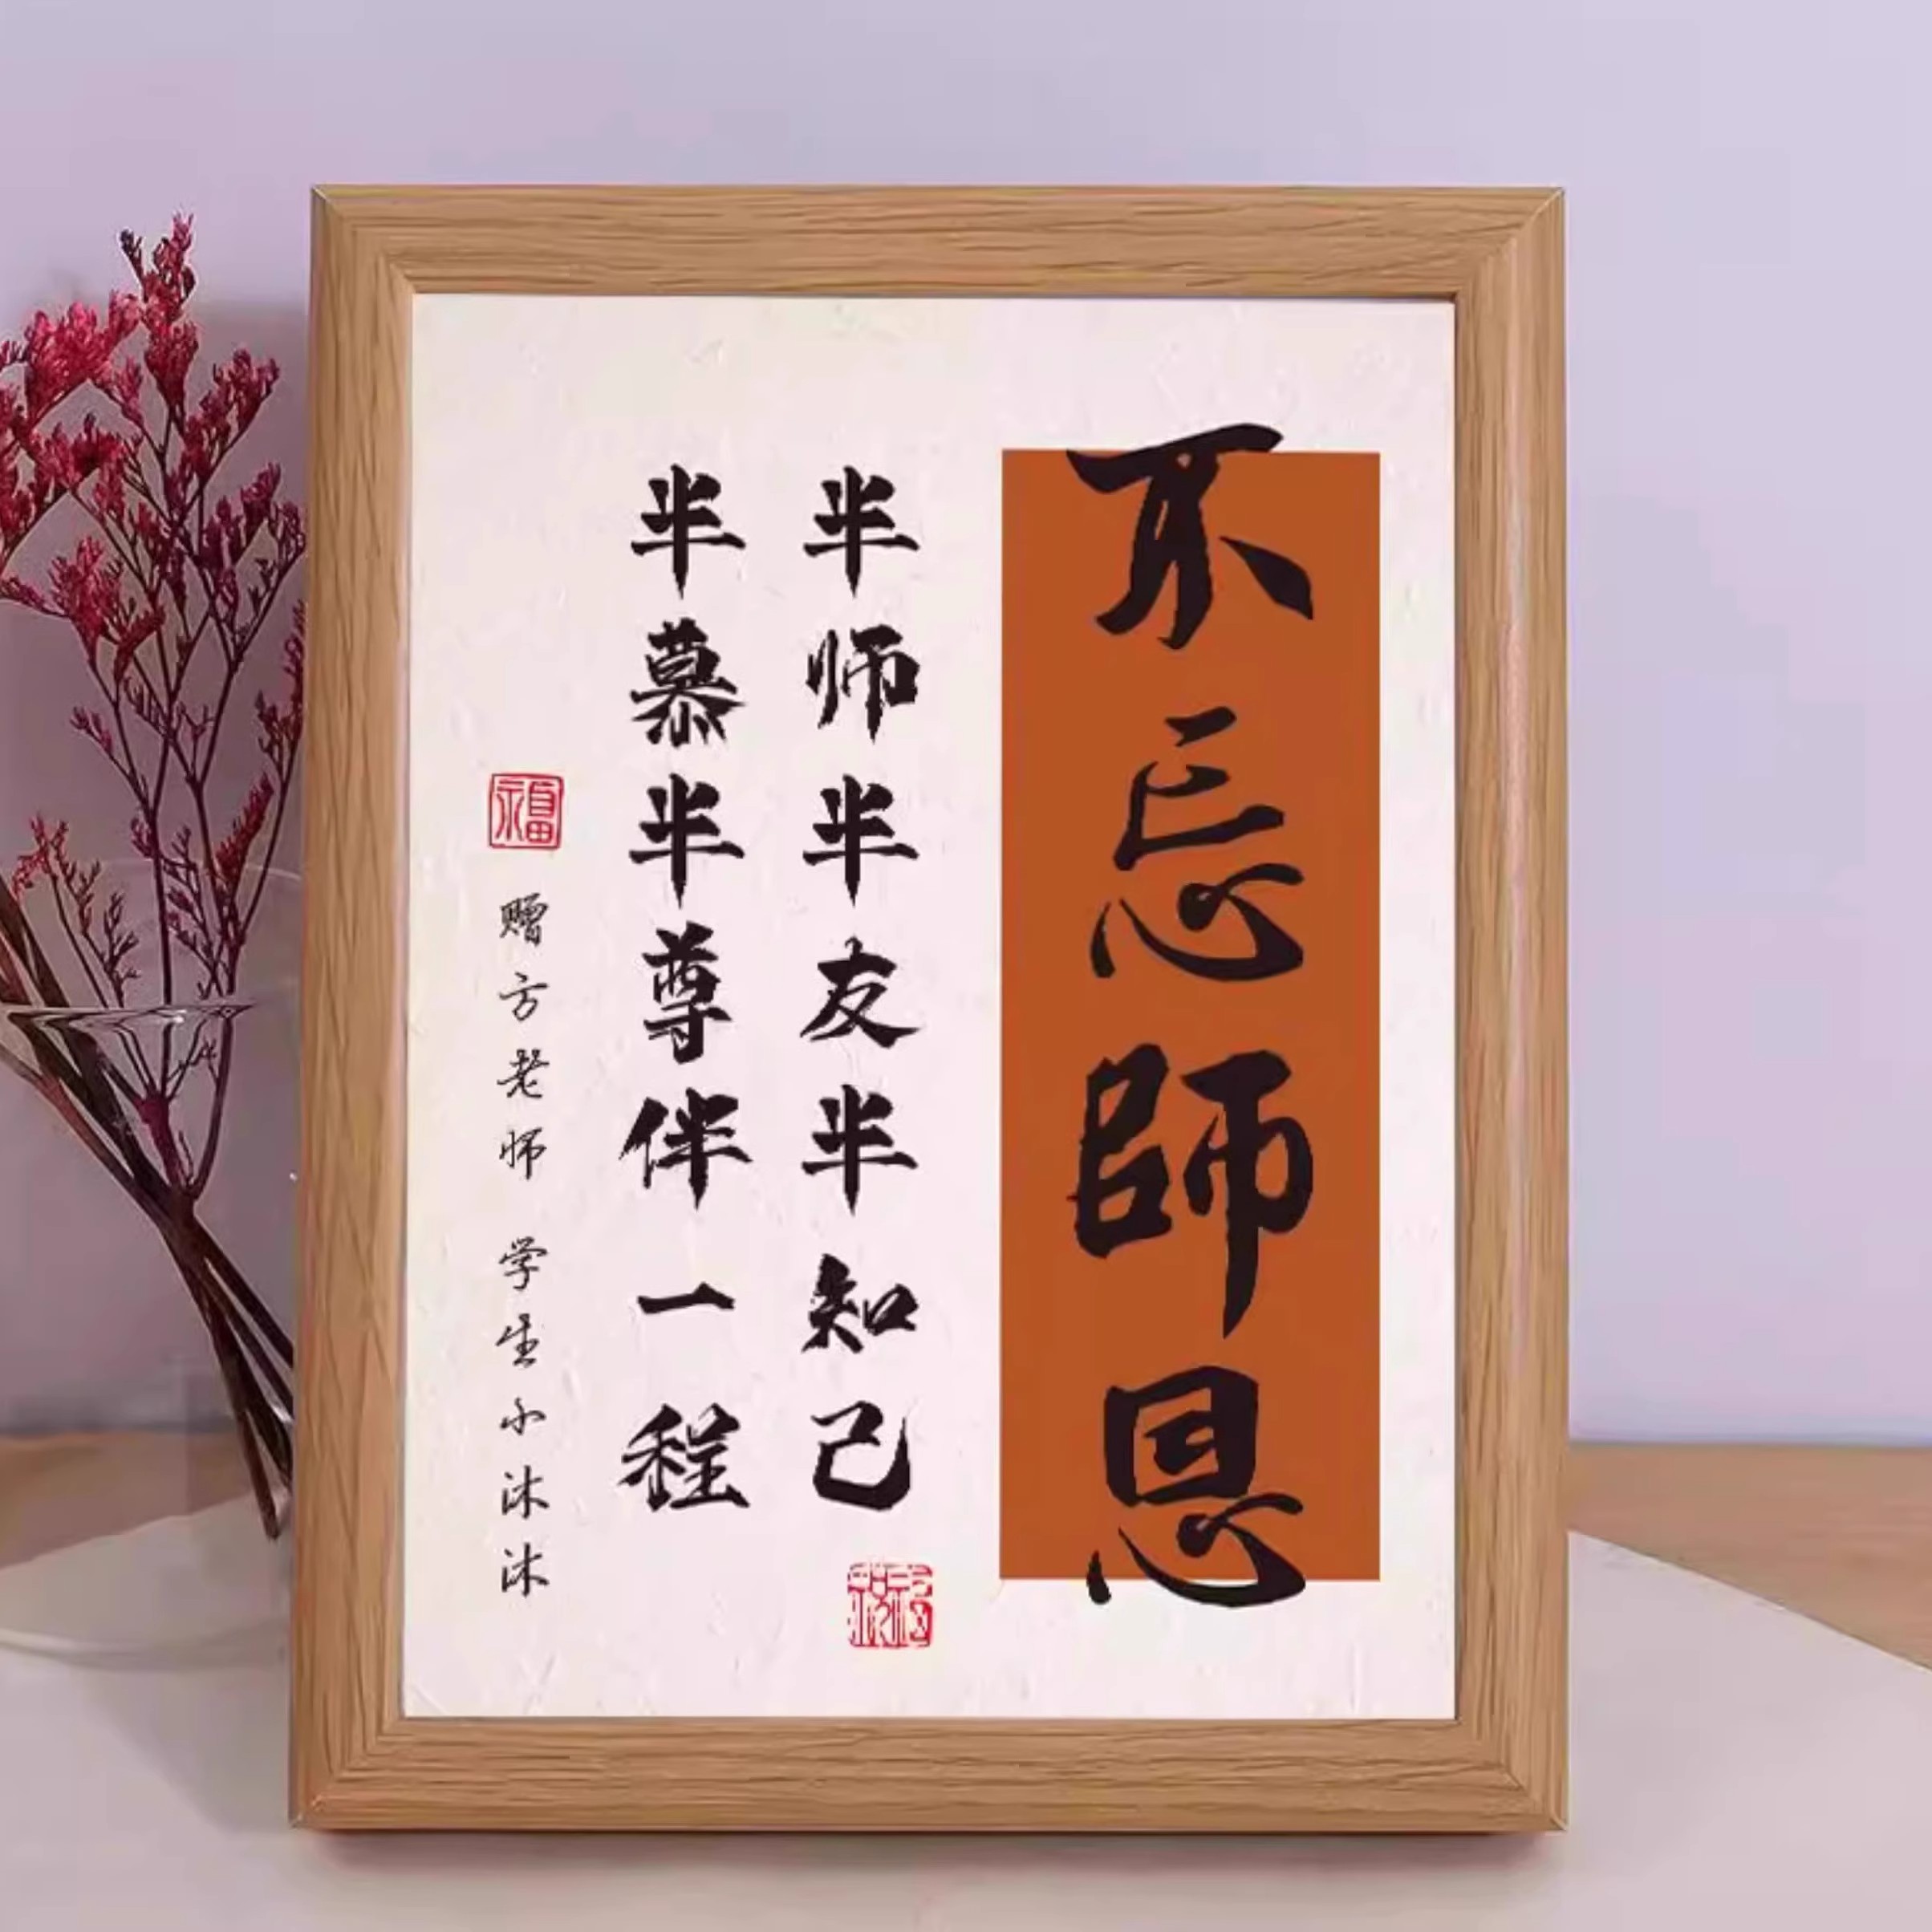 不忘師恩
半师半友半知己
半慕半尊伴一程
福
赠方老师 学生小沐沐